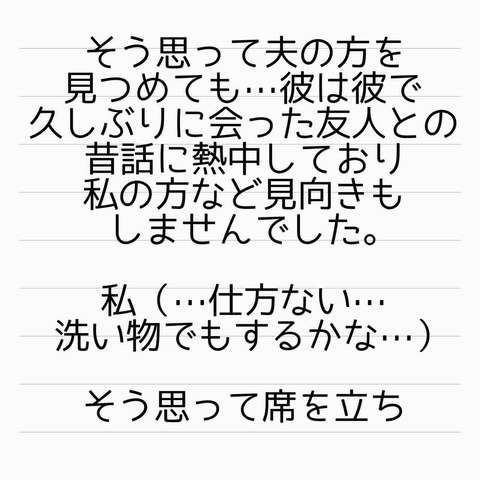 そう思って夫の方を
見つめても…彼は彼で
久しぶりに会った友人との
昔話に熱中しており
私の方など見向きも
しませんでした。
私（…仕方ない…
洗い物でもするかな…）
そう思って席を立ち